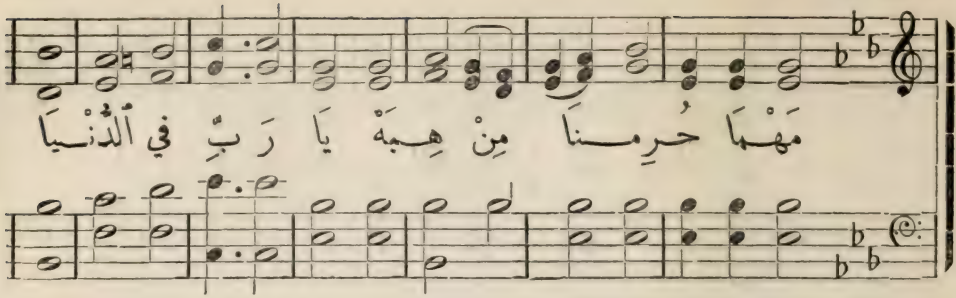 مَهْمَا حُرِمنا مِنْ هِبَةْ يَا رَبِّ في الدُّنْيا